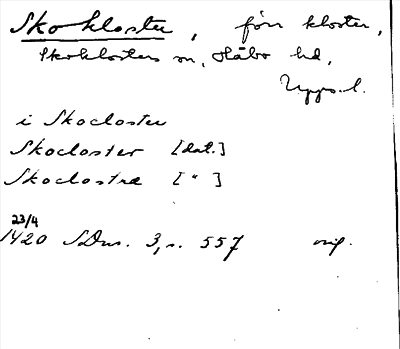 Skokloster, förr kloster,
Skoklosters sn, Håbo hd,
Upps. l.
i Skocloster
Skocloster [dat.]
Skoclostre [ " ]
23/4
1420 SDns. 3, s. 557 orig.